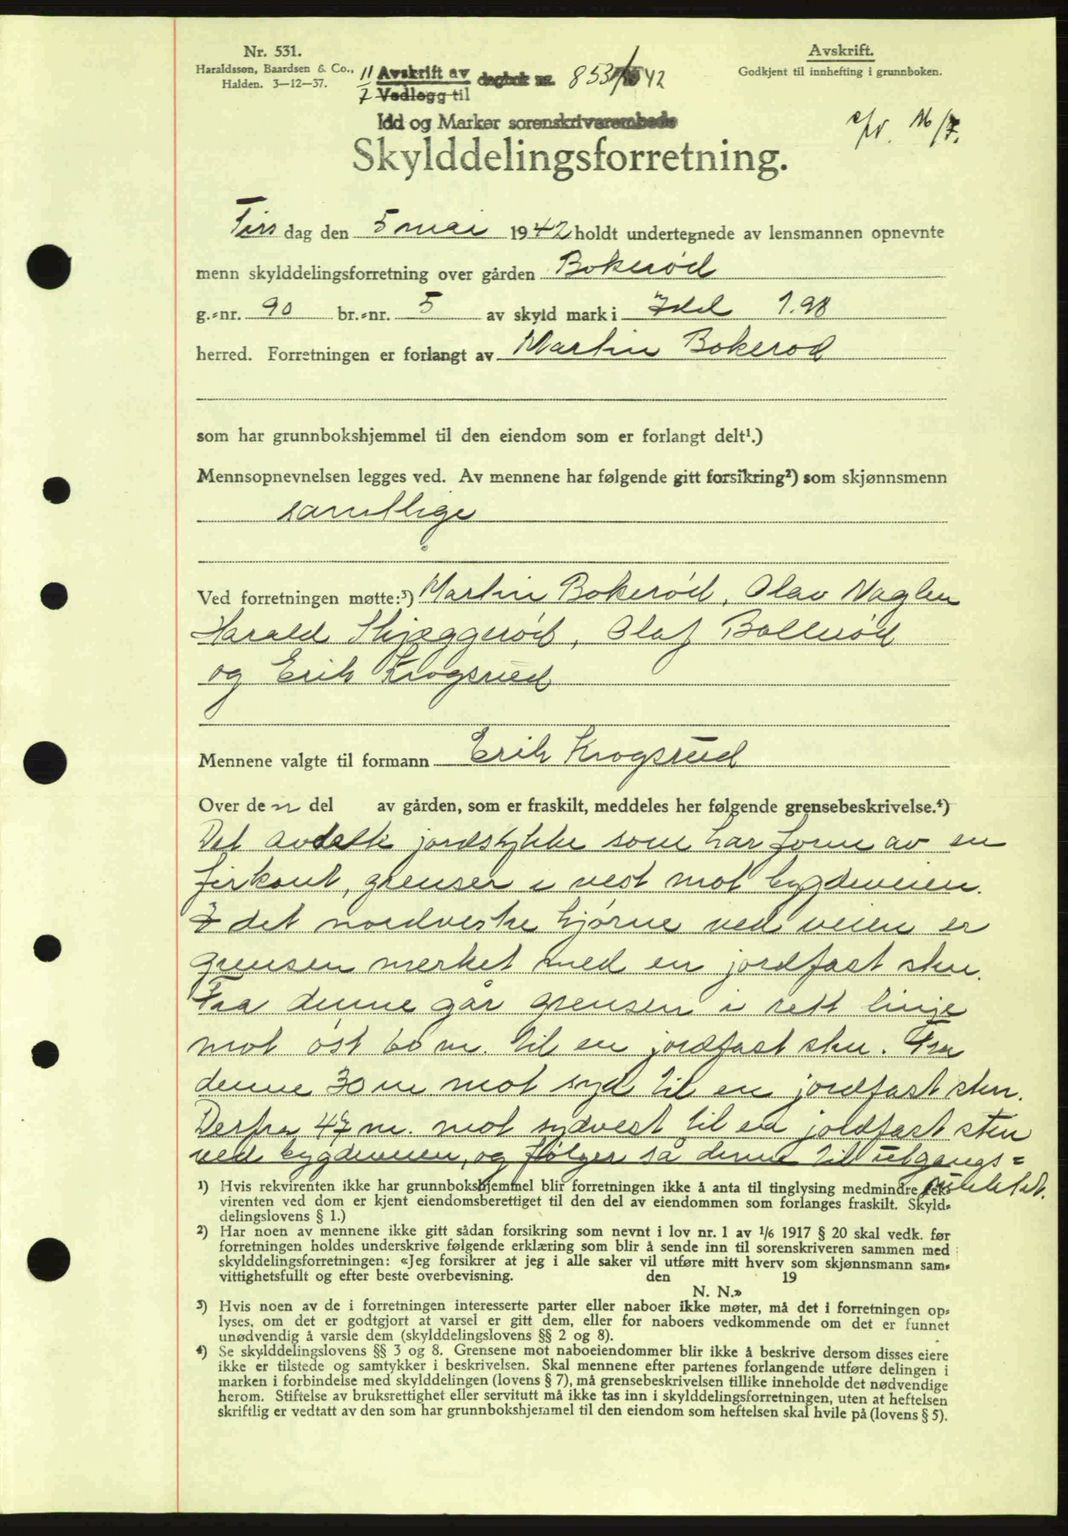 Nr. 531.
Haraldssøn, Baardsen & Co.,
Halden. 3—12—37.
Avskrift.
Godkjent til innhefting i grunnboken.
11/7 Avskrift av dagbok nr. 853/1942
Vedlegg til
Idd og Marker sorenskriverembede
16/7.
Skylddelingsforretning.
Tirsdag den 5 mai 1942 holdt undertegnede av lensmannen opnevnte
menn skylddelingsforretning over gården Bokerød
g.-nr. 90 br.-nr. 5 av skyld mark i Idd 1.98
herred. Forretningen er forlangt av Martin Bokerød
som har grunnbokshjemmel til den eiendom som er forlangt delt¹.)
Mennsopnevnelsen legges ved. Av mennene har følgende gitt forsikring²) som skjønnsmenn
samtlige
Ved forretningen møtte:³) Martin Bokerød, Olav Naglen
Harald Skjæggerød, Olaf Bollerød
og Erik Krogsrud
Mennene valgte til formann Erik Krogsrud
Over den del av gården, som er fraskilt, meddeles her følgende grensebeskrivelse.⁴)
Det avdelte jordstykke som har form av en
firkant, grenser i vest mot bygdeveien.
I det nordvestre hjørne ved veien er
grensen merket med en jordfast sten.
Fra denne går grensen i rett linje
mot øst 60 m. til en jordfast sten. Fra
denne 30 m mot syd til en jordfast sten.
Derfra 47 m. mot sydvest til en jordfast sten
ved bygdeveien, og følger så denne til utgangs=
punktet.
¹) Hvis rekvirenten ikke har grunnbokshjemmel blir forretningen ikke å anta til tinglysing medmindre rek-
virenten ved dom er kjent eiendomsberettiget til den del av eiendommen som forlanges fraskilt. Skyld-
delingslovens § 1.)
²) Har noen av mennene ikke gitt sådan forsikring som nevnt i lov nr. 1 av 1/6 1917 § 20 skal vedk. før
forretningen holdes underskrive følgende erklæring som blir å sende inn til sorenskriveren sammen med
skylddelingsforretningen: «Jeg forsikrer at jeg i alle saker vil utføre mitt hverv som skjønnsmann sam-
vittighetsfullt og efter beste overbevisning. den 19
N. N.»
³) Hvis noen av de i forretningen interesserte parter eller naboer ikke møter, må det i forretningen op-
lyses, om det er godtgjort at varsel er gitt dem, eller for naboers vedkommende om det er funnet
unødvendig å varsle dem (skylddelingslovens §§ 2 og 8).
⁴) Se skylddelingslovens §§ 3 og 8. Grensene mot naboeiendommer blir ikke å beskrive dersom disses eiere
ikke er tilstede og samtykker i beskrivelsen. Skal mennene efter partenes forlangende utføre delingen i
marken i forbindelse med skylddelingen (lovens § 7), må grensebeskrivelsen tillike inneholde det nødvendige
herom. Stiftelse av bruksrettighet eller servitutt må ikke tas inn i skylddelingsforretningen, uten at heftelsen
skriftlig er vedtatt av den som har grunnbokshjemmel til den eiendom som heftelsen skal hvile på (lovens § 5).